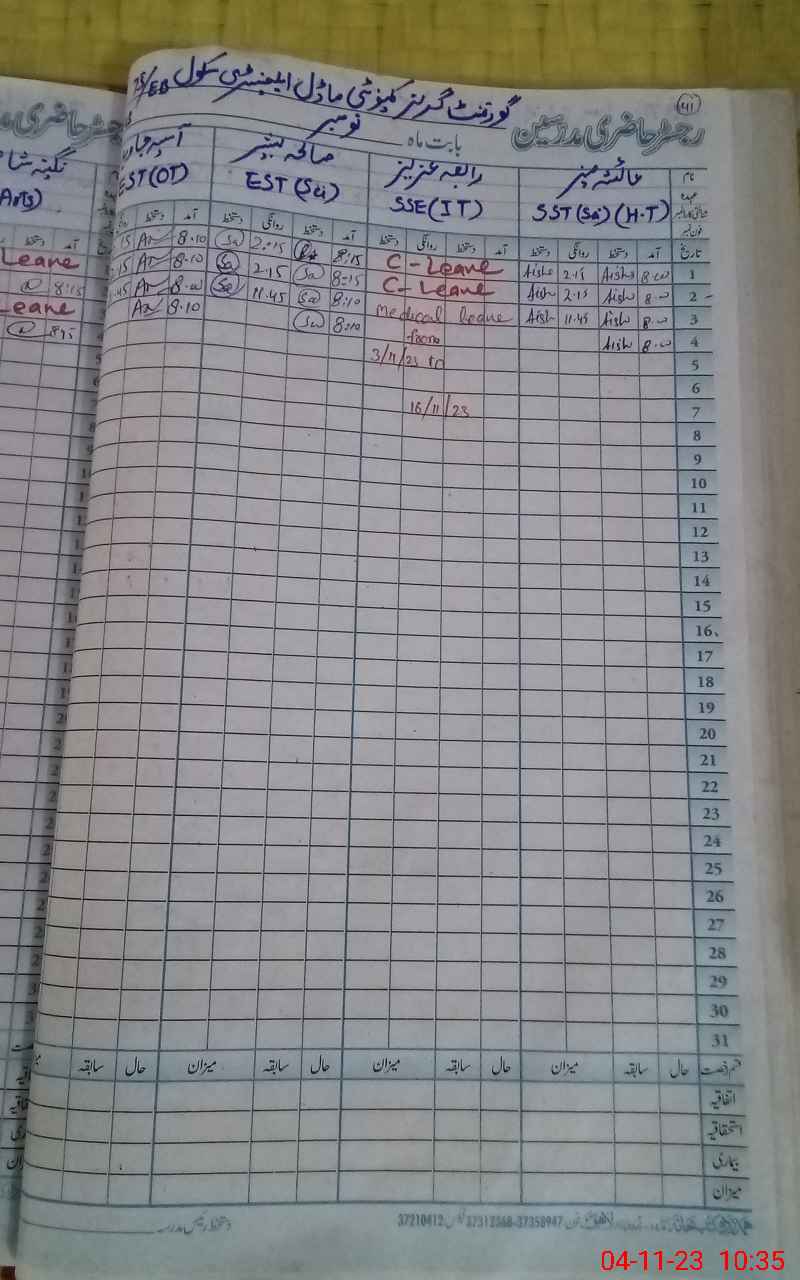 گورنمنٹ گرلز کمیونٹی ماڈل ایلیمنٹری سکول /EB
41
رجسٹر حاضری مدرسین
بابت ماہ نومبر
رجسٹر حاضری
نام عائشہ رابعہ عزیز صالحہ آسیہ نگینہ
عہدہ SST (Sci) (H.T) SSE (IT) EST (Sci) EST (OT) Arts)
تاریخ آمد دستخط روانگی دستخط آمد دستخط روانگی دستخط آمد دستخط روانگی دستخط آمد دستخط آمد دستخط
1 8.00 Aisha 2.15 Aisha C-Leave 8:15 2:15 Sa 8.10 Leave
2 8.00 Aish 2.15 Aish C-Leave 8:15 Sa 2.15 Sa 8.10 8:15
3 8.00 Aish 11.45 Aish Medical leave 8:10 Sa 11.45 Sa 8.00 Leave
4 8.00 Aish from 8:10 Sa 8.10
5 3/11/23 to
6
7 16/11/23
8
9
10
11
12
13
14
15
16
17
18
19
20
21
22
23
24
25
26
27
28
29
30
31
قسم رخصت حال سابقہ میزان حال سابقہ میزان حال سابقہ میزان حال سابقہ
اتفاقیہ
استحقاقیہ
بیماری
میزان
37210412 37312368-37358947 دستخط رئیس مدرسہ
04-11-23 10:35